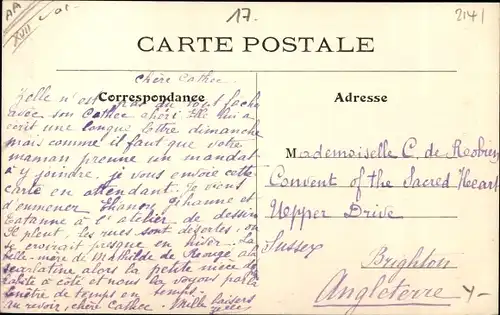 AA
XVII
17.
2141
CARTE POSTALE
Chère Cathec
Correspondance
Adresse
Zelle n'est pas du tout fâchée
avec son Cathec chéri Elle lui a
écrit une longue lettre dimanche
mais comme il faut que votre
maman prenne un mandat
à y joindre, je vous envoie cette
carte en attendant. Je viens
d'emmener Jehanne et
à l'atelier de dessin
Il pleut, les rues sont désertes, on
se croirait presque en hiver. La
belle-mère de Mathilde de a la
scarlatine alors la petite mère de
à côté et nous la voyons par la
fenêtre de temps en temps.
au revoir, chère Cathec. Mille baisers
Mademoiselle C. de
Convent of the Sacred Heart
Upper Drive
Sussex
Brighton
Angleterre